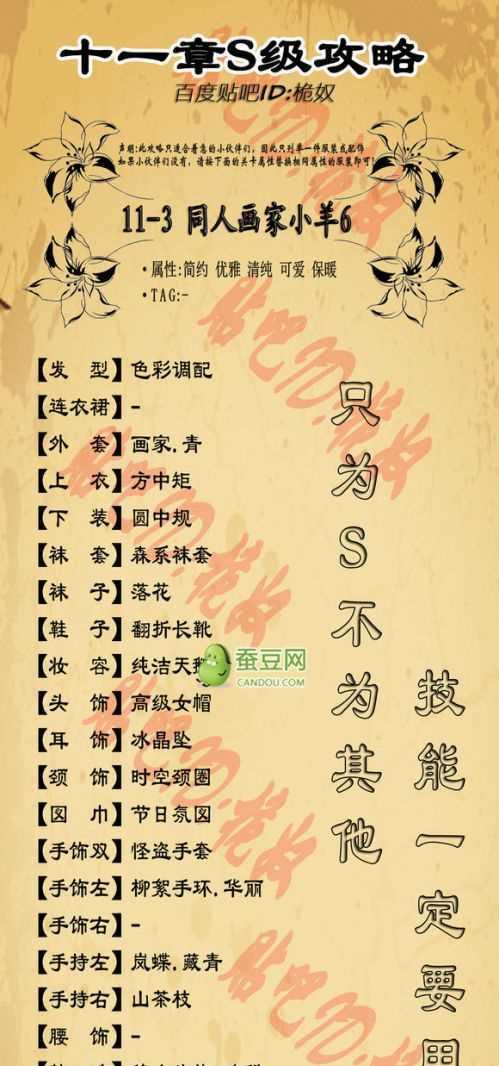 十一章S级攻略
百度贴吧ID:桅奴
声明:此攻略只适合着急的小伙伴们，因此只列举一件服装或配饰
如果小伙伴们没有，请按下面的关卡属性替换相同属性的服装即可!
11-3 同人画家小羊6
·属性:简约 优雅 清纯 可爱 保暖
·TAG:-
【发 型】色彩调配
【连衣裙】-
【外 套】画家.青
【上 衣】方中矩
【下 装】圆中规
【袜 套】森系袜套
【袜 子】落花
【鞋 子】翻折长靴
【妆 容】纯洁天
【头 饰】高级女帽
【耳 饰】冰晶坠
【颈 饰】时空颈圈
【围 巾】节日氛围
【手饰双】怪盗手套
【手饰左】柳絮手环.华丽
【手饰右】-
【手持左】岚蝶.藏青
【手持右】山茶枝
【腰 饰】-
只为S不为其他
技能一定要用
蚕豆网
CANDOU.COM
贴吧ID:桅奴
贴吧ID:桅奴
贴吧ID:桅奴
贴吧ID:桅奴